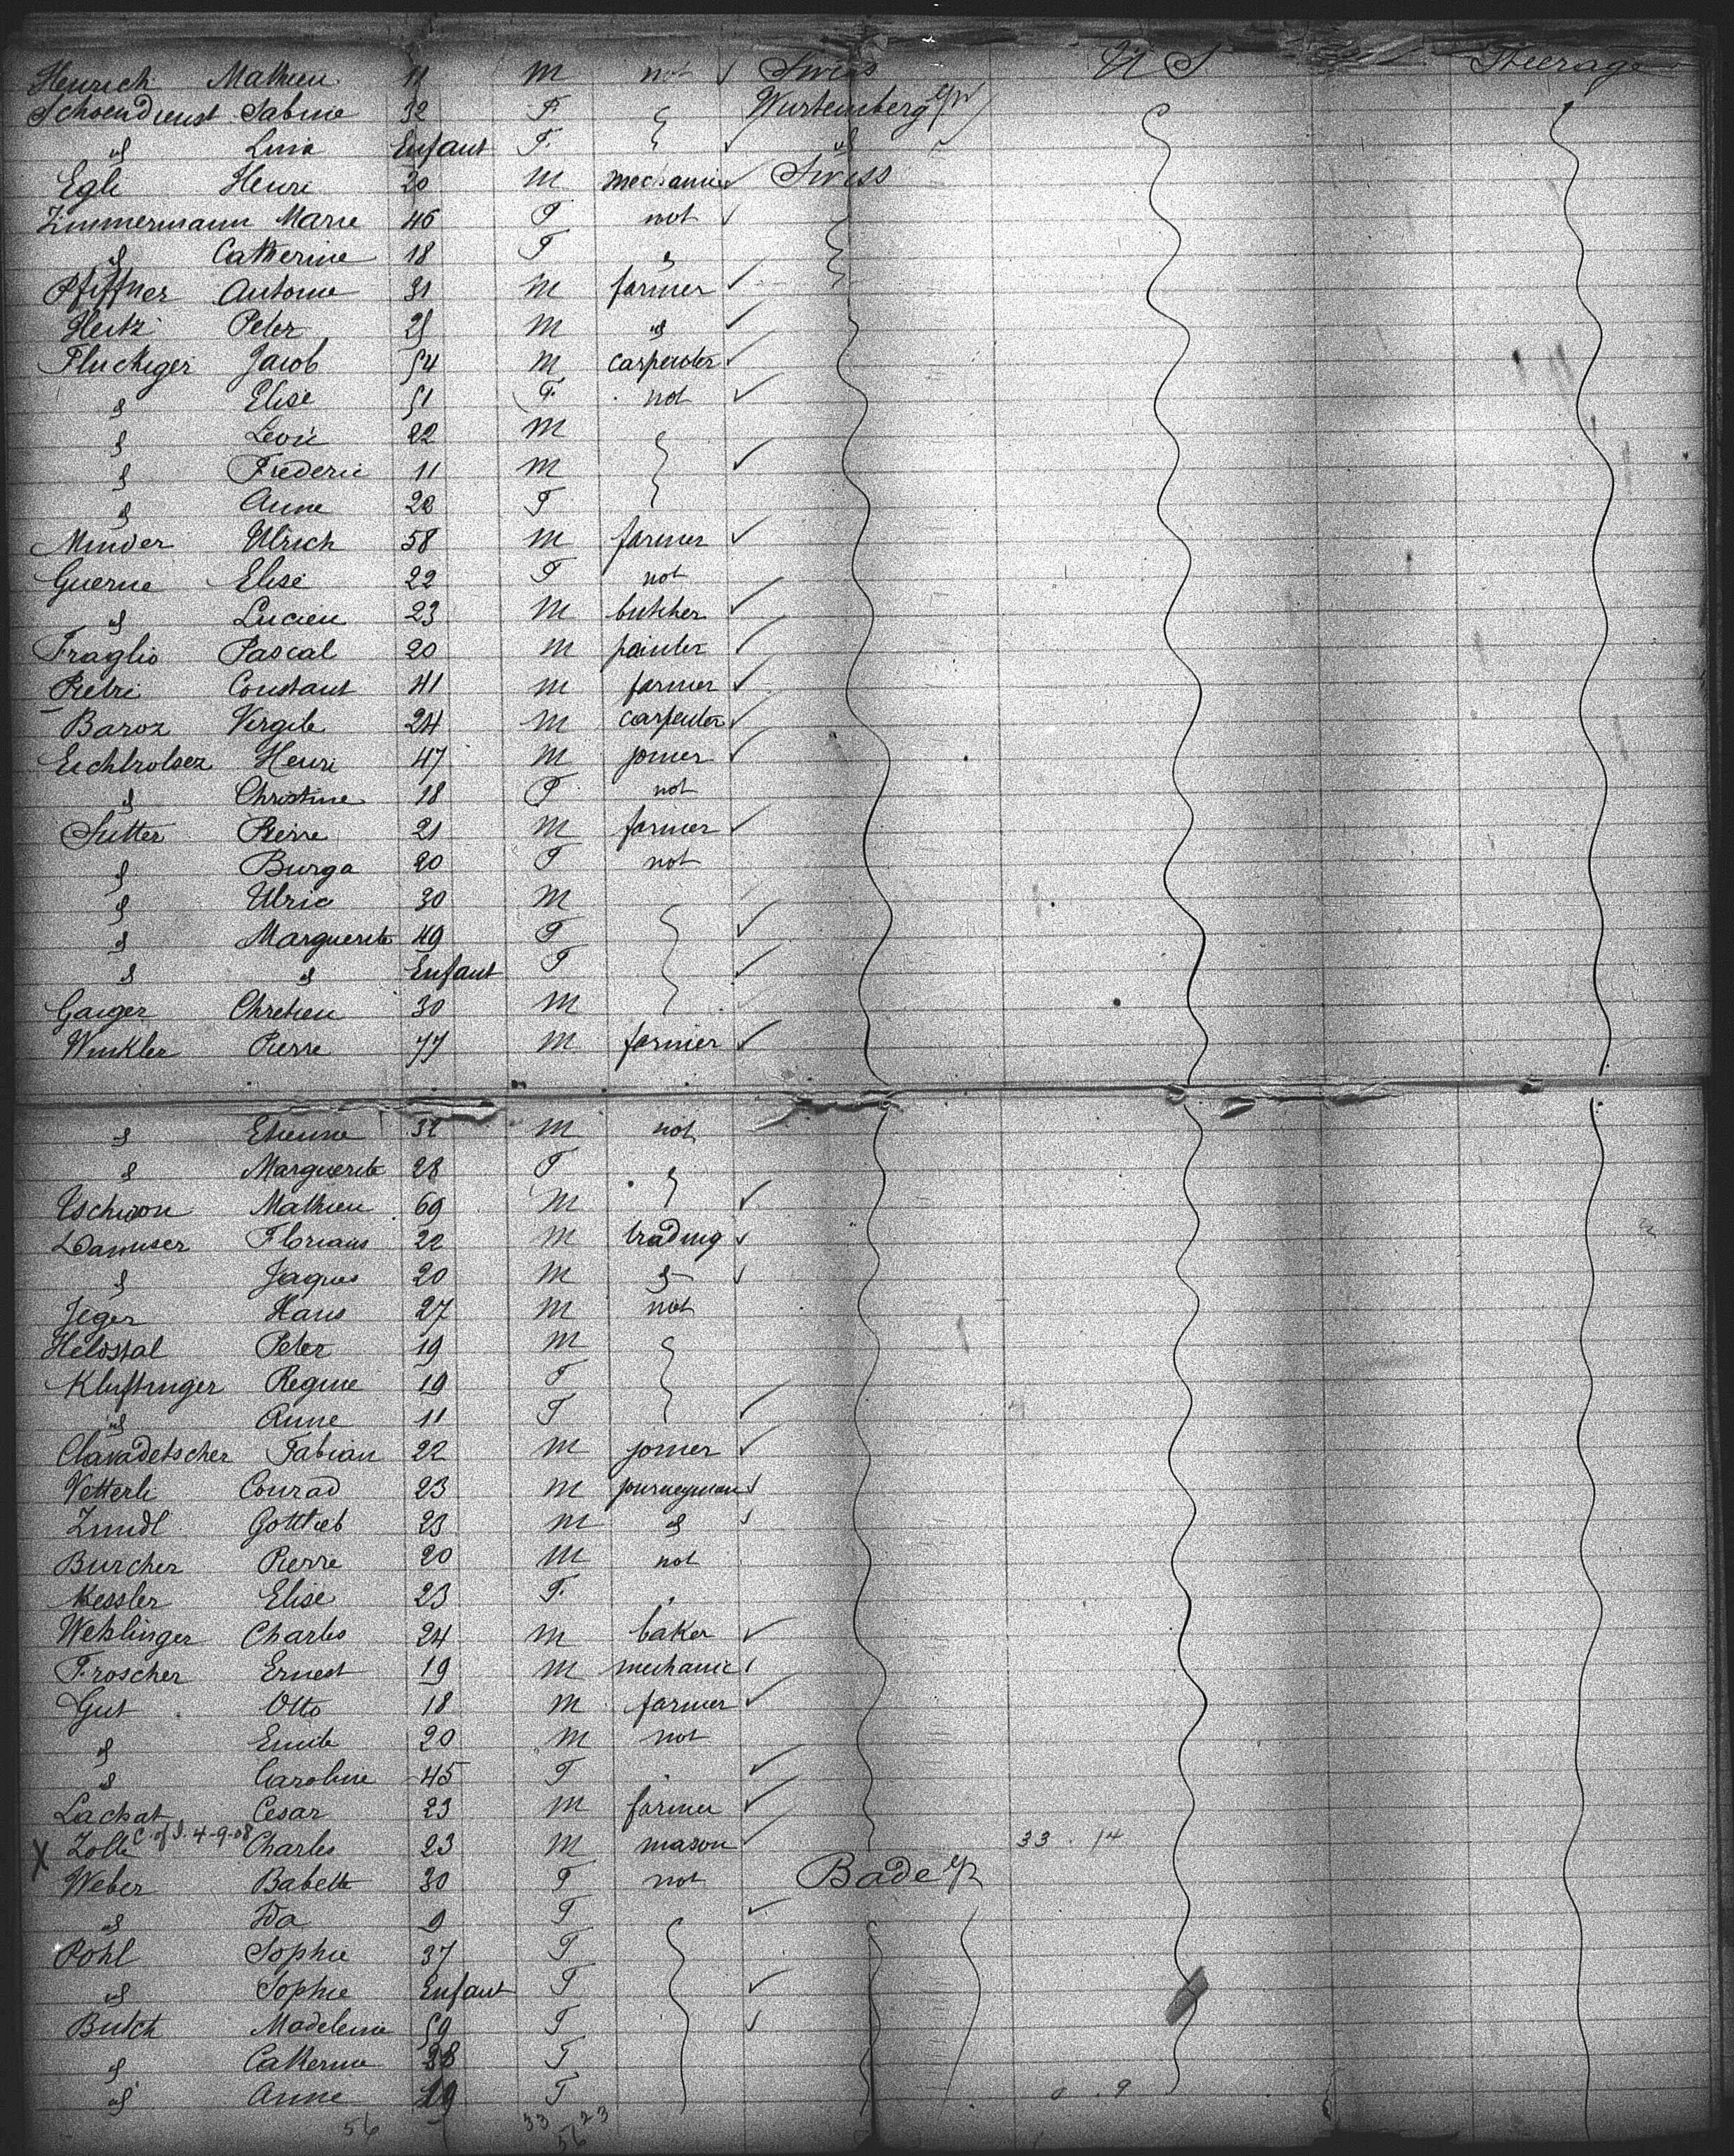 Henrich Mathieu 11 M not ✓ Swiss U S Steerage
Schoendienst Sabine 32 F Wurtemberg
" Lina Enfant F ✓ "
Egli Henri 20 M mechanic ✓ Swiss
Zimmermann Marie 46 F not ✓
" Catherine 18 F "
Pfiffner Antoine 31 M farmer ✓
Heitz Peter 25 M " ✓
Fluckiger Jacob 54 M carpenter ✓
" Elise 51 F not ✓
" Leon 22 M
" Frederic 11 M ✓
" Anne 22 F
Minder Ulrich 58 M farmer ✓
Guerne Elise 22 F not
" Lucien 23 M butcher ✓
Fraglio Pascal 20 M painter ✓
Pietri Constant 41 M farmer ✓
Baroz Virgile 24 M carpenter ✓
Eichholzer Henri 47 M joiner ✓
" Christine 18 F not
Sutter Pierre 21 M farmer ✓
" Burga 20 F not
" Ulric 30 M
" Marguerite 49 F ✓
" " Enfant F ✓
Gaiger Chretien 30 M
Winkler Pierre 77 M farmer ✓
" Etienne 32 M not
" Marguerite 28 F "
Mathieu 69 M ✓
Danuser Florians 22 M trading ✓
" Jaques 20 M " ✓
Jeger Hans 27 M not
Heldstal Peter 19 M
Kluftinger Regine 19 F
" Anne 11 F ✓
Clavadetscher Fabian 22 M joiner ✓
Vetterli Conrad 23 M journeyman ✓
Zundl Gottlieb 23 M " ✓
Burcher Pierre 20 M not
Kessler Elise 23 F "
Wehlinger Charles 24 M baker ✓
Froscher Ernest 19 M mechanic ✓
Gut Otto 18 M farmer ✓
" Emile 20 M not
" Caroline 45 F " ✓
Lachat Cesar 23 M farmer ✓
X Zolli C. of I. 4-9-08 Charles 23 M mason ✓ 33 . 14
Weber Babette 30 F not Bade
" Ida 9 F ✓
Pohl Sophie 37 F
" Sophie Enfant F ✓
Butch Madeleine 59 F ✓
" Catherine 28 F
" Anne 19 F 0 . 9
56 33 23
56